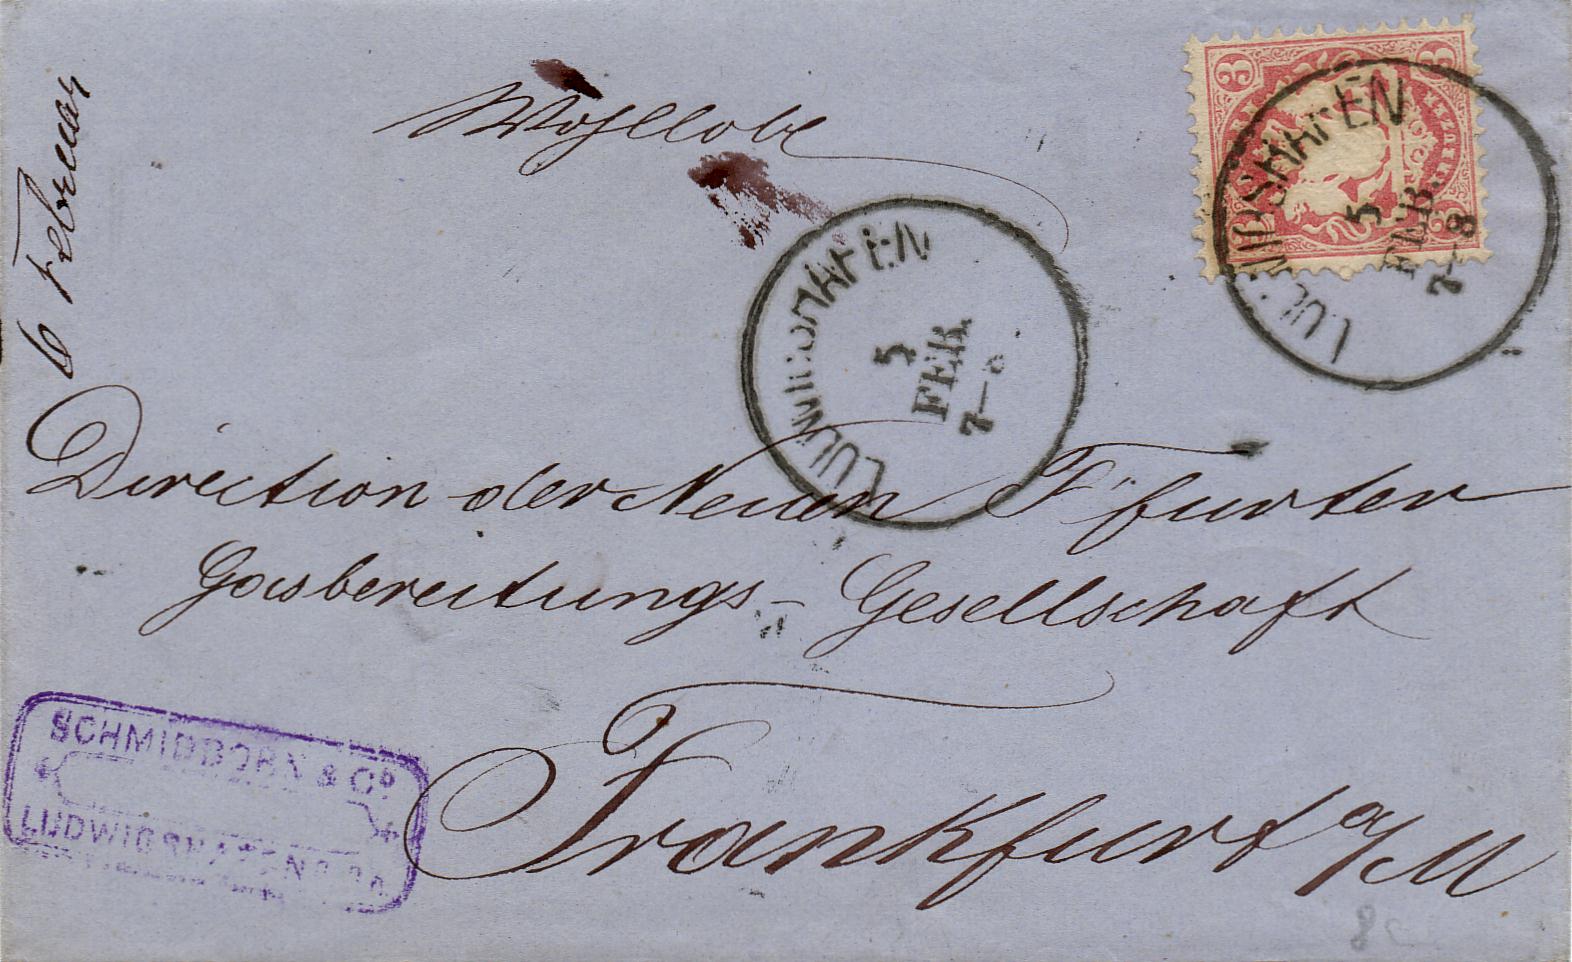 6 Februar
Wohllobl
3 3
LUDWIGSHAFEN
5
FEB.
7—8
LUDWIGSHAFEN
5
FEB.
7—8
Direction der Neuen F'furter
Gasbereitungs-Gesellschaft
Frankfurt a/M
SCHMIDBORN & Co
LUDWIGSHAFEN